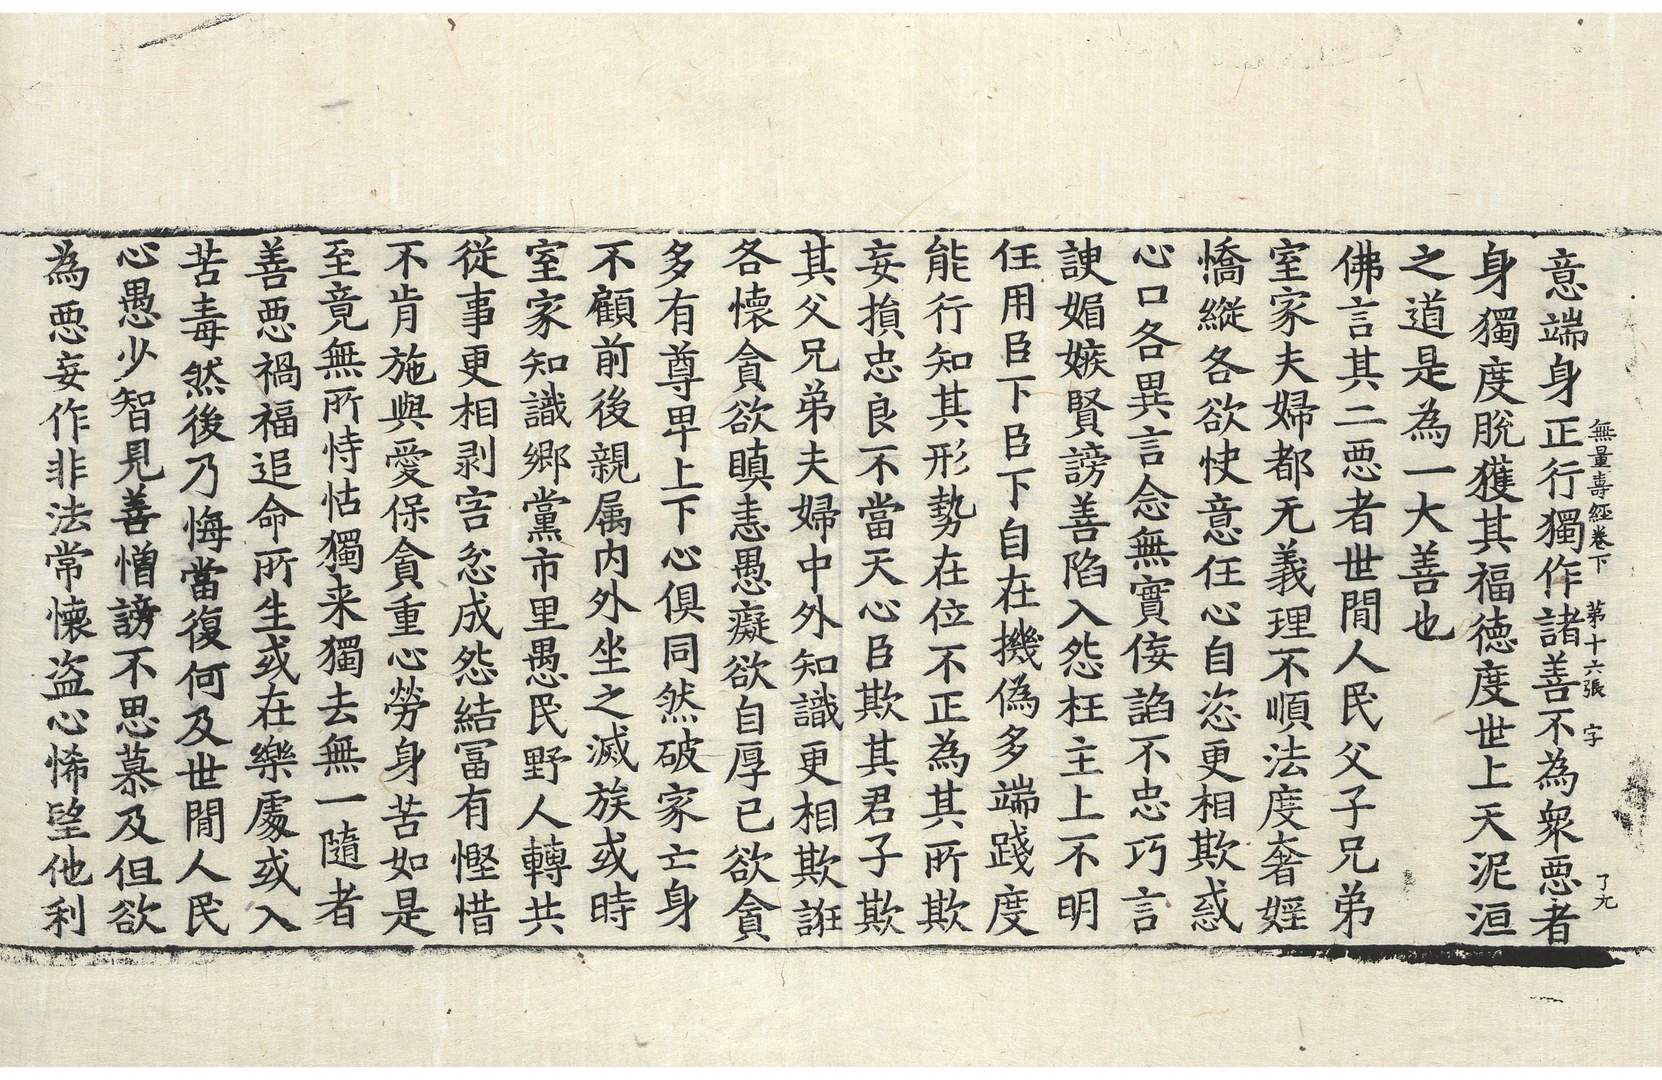 無量壽經卷下 第十六張 字 了九
意端身正行獨作諸善不為衆悪者
身獨度脫獲其福徳度世上天泥洹
之道是為一大善也
佛言其二悪者世閒人民父子兄弟
室家夫婦都无義理不順法度奢婬
憍縱各欲快意任心自恣更相欺惑
心口各異言念無實佞謟不忠巧言
諛媚嫉賢謗善陷入怨枉主上不明
任用臣下臣下自在機偽多端踐度
能行知其形勢在位不正為其所欺
妄損忠良不當天心臣欺其君子欺
其父兄弟夫婦中外知識更相欺誑
各懐貪欲瞋恚愚癡欲自厚已欲貪
多有尊卑上下心俱同然破家亡身
不顧前後親属内外坐之滅族或時
室家知識鄉黨市里愚民野人轉共
従事更相剥害忿成怨結冨有慳惜
不肯施與愛保貪重心勞身苦如是
至竟無所恃怙獨来獨去無一隨者
善悪禍福追命所生或在樂處或入
苦毒然後乃悔當復何及世閒人民
心愚少智見善憎謗不思慕及但欲
為悪妄作非法常懐盗心悕望他利